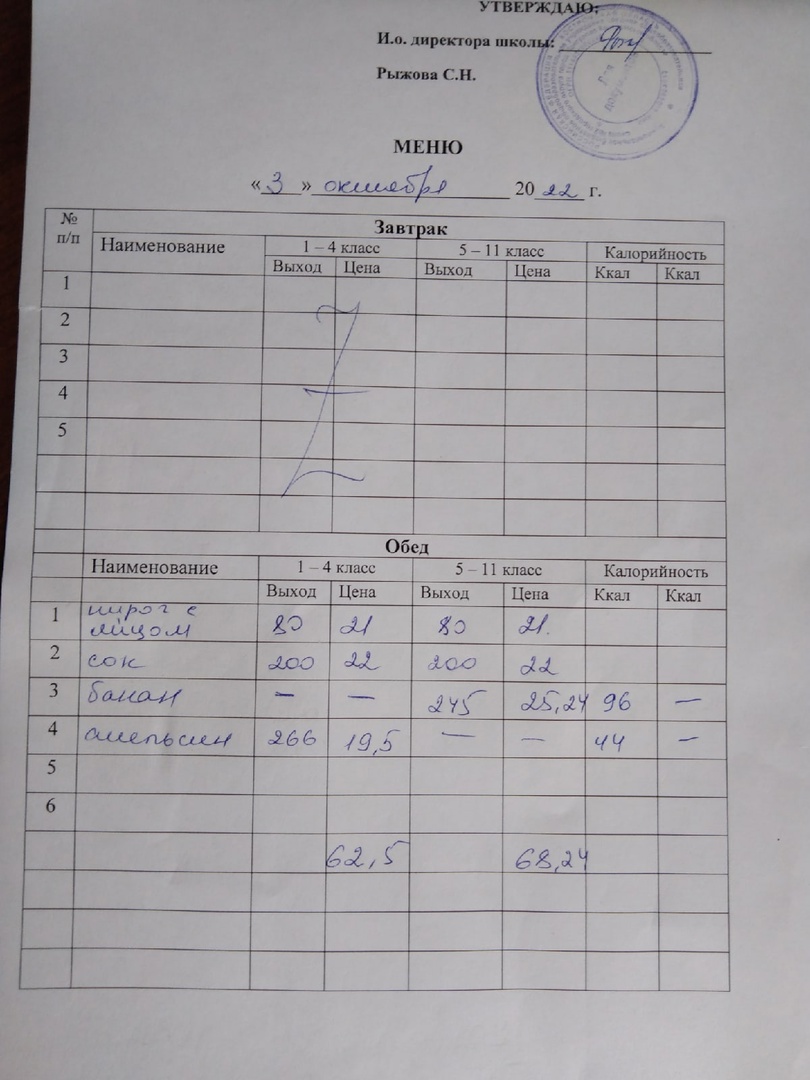 УТВЕРЖДАЮ:
И.о. директора школы:
Рыжова С.Н.
МЕНЮ
« 3 » октября 20 22 г.
№ п/п Завтрак
Наименование 1 – 4 класс 5 – 11 класс Калорийность
Выход Цена Выход Цена Ккал Ккал
1
2
3
4
5
Обед
Наименование 1 – 4 класс 5 – 11 класс Калорийность
Выход Цена Выход Цена Ккал Ккал
1 пирог с яйцом 80 21 80 21.
2 сок 200 22 200 22
3 банан — — 245 25,24 96 —
4 апельсин 266 19,5 — — 44 —
5
6
62,5 68,24